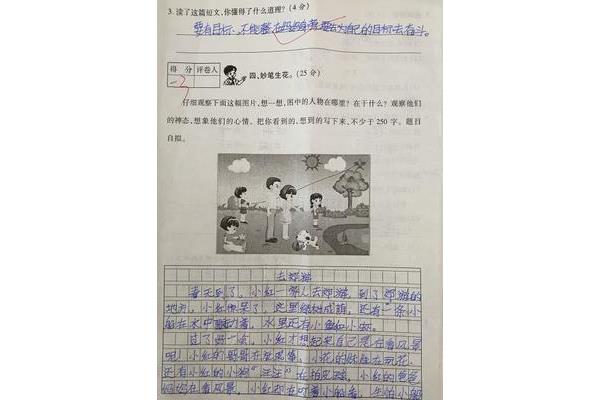 3. 读了这篇短文,你懂得了什么道理?(4 分)
要有目标,不能 自己的目标去奋斗。
得 分 评卷人
-3
四、妙笔生花。(25 分)
仔细观察下面这幅图片,想一想,图中的人物在哪里?在干什么?观察他们
的神态,想象他们的心情。把你看到的,想到的写下来,不少于 250 字。题目
自拟。
去郊游
春天到了,小红一家人去郊游,到了郊游的
地方,小红惊呆了,这里绿树成荫,还有一条小
船在水中 着,水里还有小鱼和小虾。
过了一会,小红才想起来自己是在看风景
呢!小红的哥哥在放风筝,小花的妹妹在玩花。
还有小红的小狗“汪汪”在拍皮球,小红的爸爸
妈妈在看风景,小红却在盯着小船看,